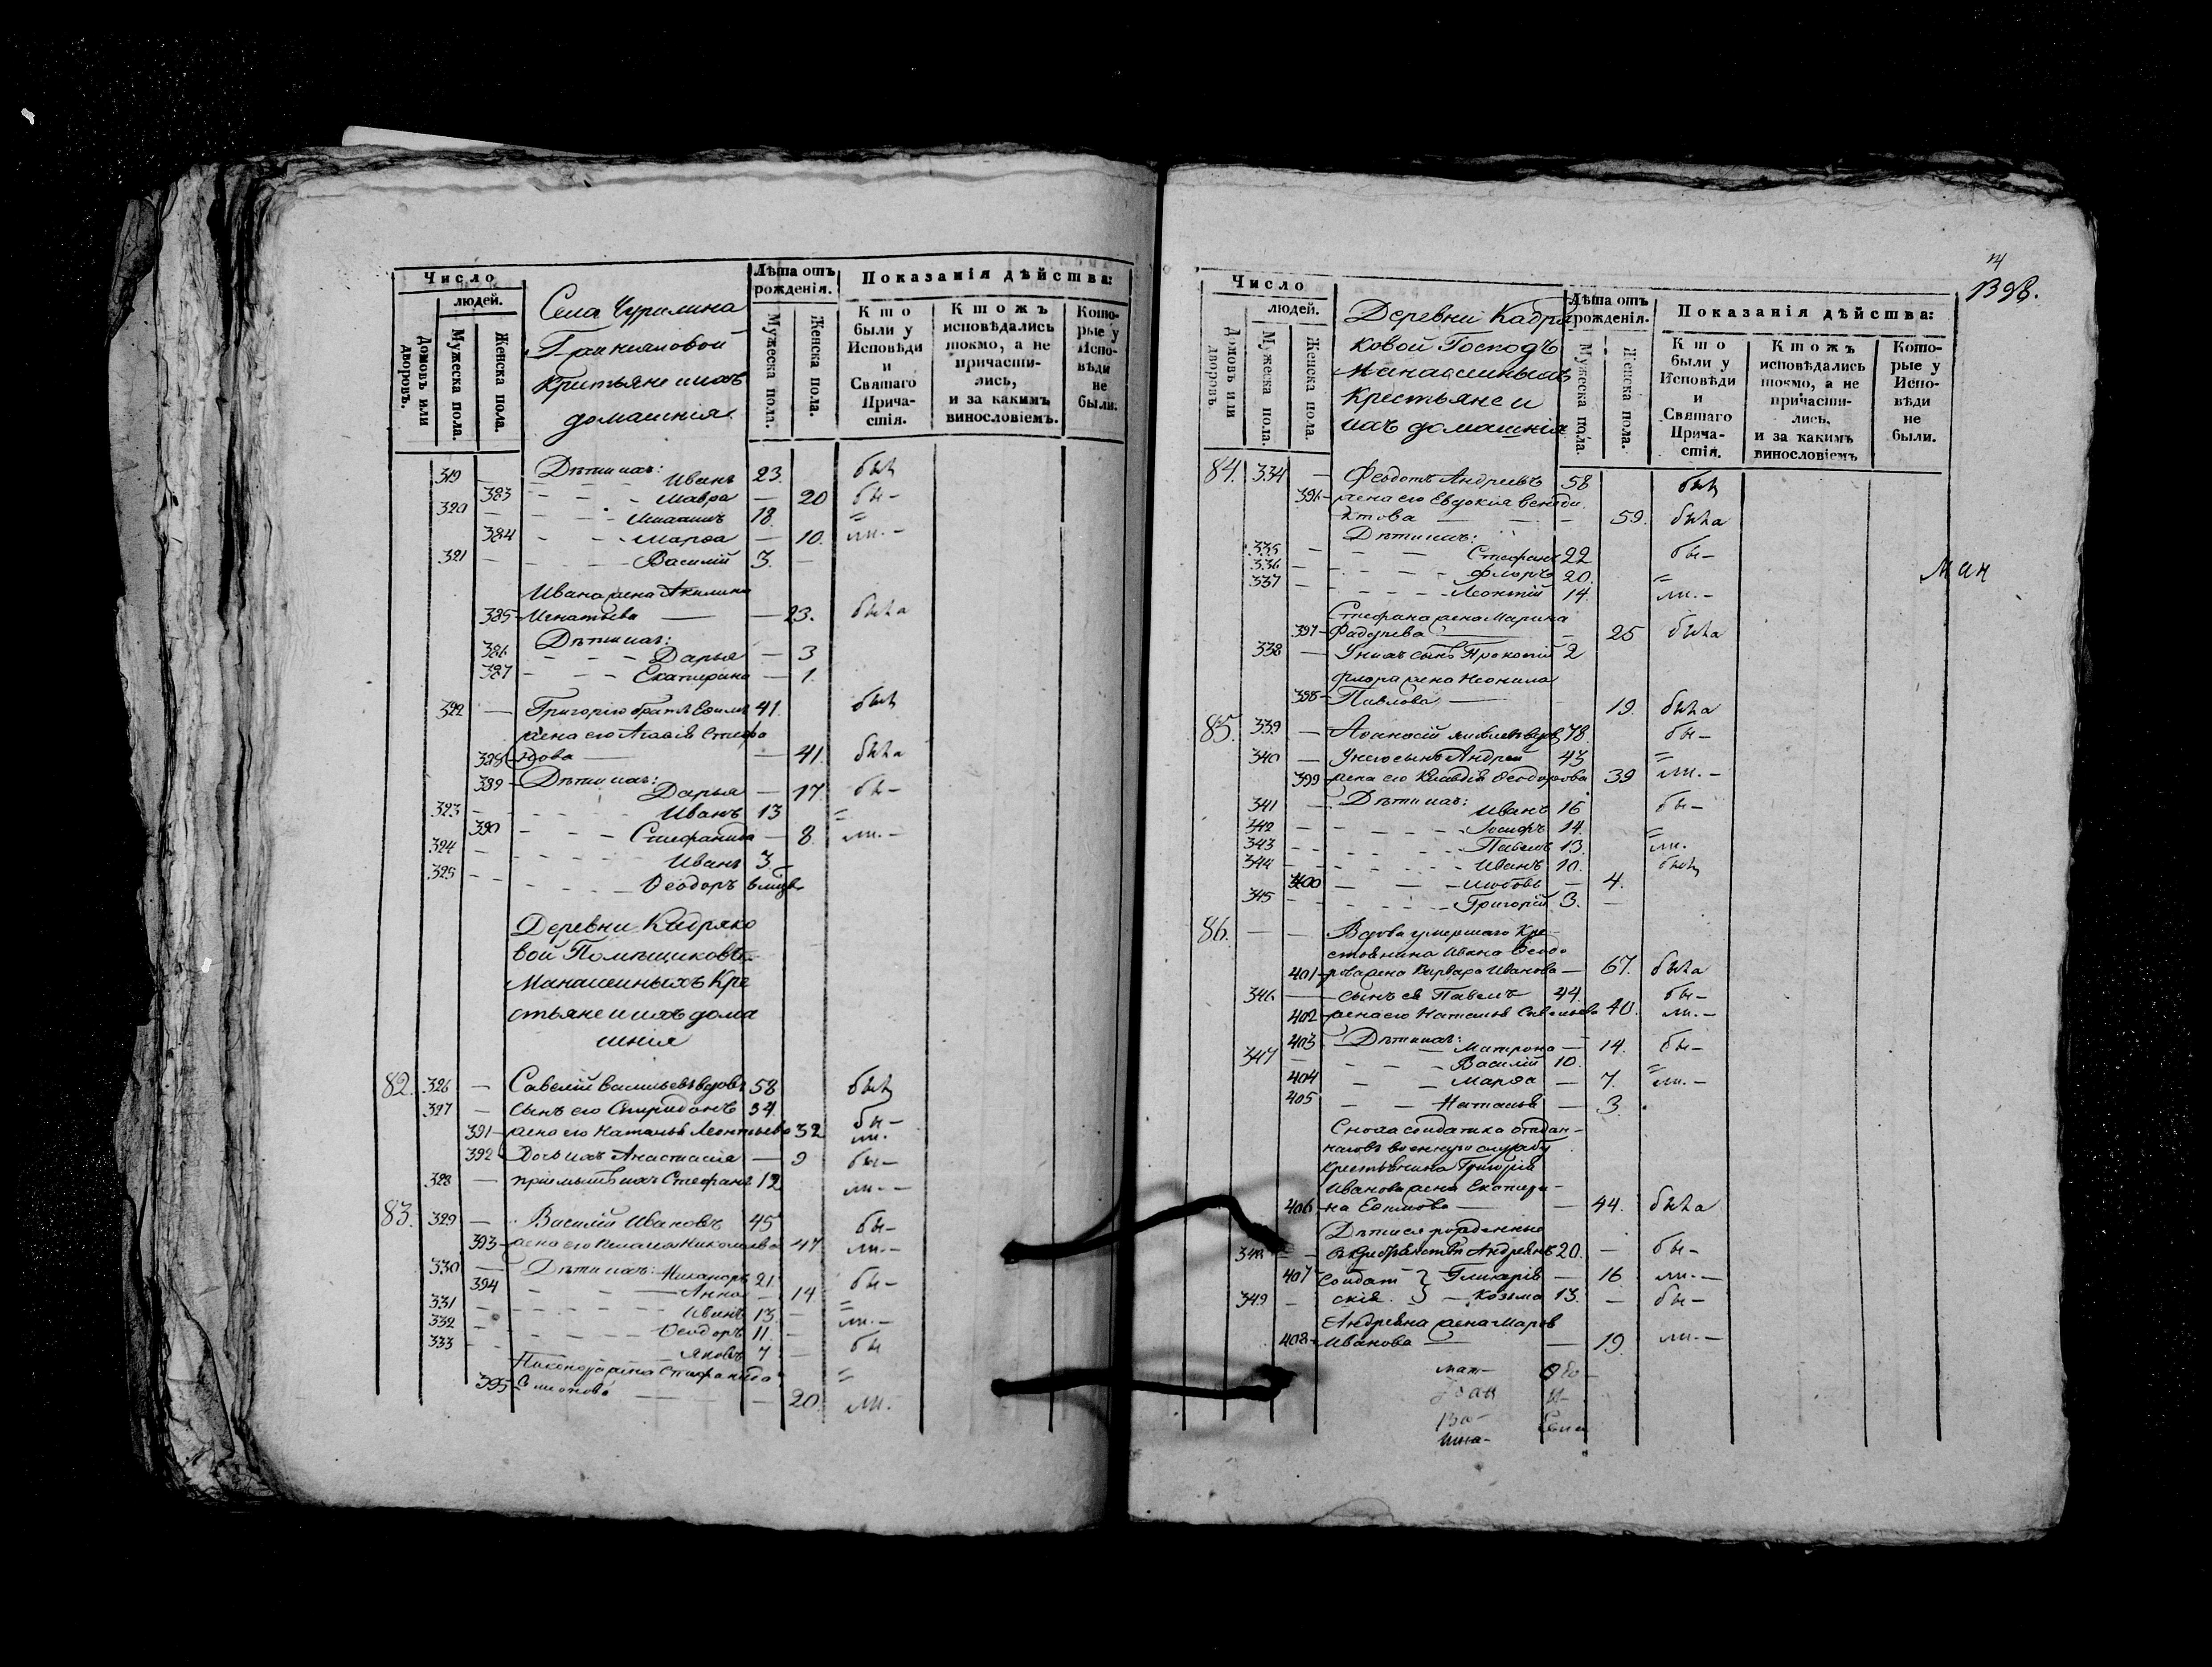 Число
людей.
Домовъ или дворовъ.
Мужеска пола.
Женска пола.
Села Чурилина
Крестьяне и ихъ
домашнія
Лѣта отъ рожденія.
Мужеска пола.
Женска пола.
Показанія дѣйства:
Кто были у Исповѣди и Святаго Причастія.
Ктожъ исповѣдались токмо, а не причастились, и за какимъ винословіемъ.
Которые у Исповѣди не были.
319 — Дѣти ихъ: Иванъ 23. былъ
383 — Мавра — 20 бы—
320 — 18. =
384 — Марѳа — 10. ли.—
321 — Василій 3. —
Ивана жена Акилина
385 Игнатьева — 23. была
Дѣти ихъ:
386 — Дарья — 3
387 — Екатерина — 1.
322 — Григорію братъ Ефимъ 41. былъ
жена его Агаѳія Стефа
388 нова — 41. была
389 Дѣти ихъ: Дарья — 17. бы—
323 — Иванъ 13 =
390 — Стефанида — 8. ли.—
324 — Иванъ 3 —
325 — Ѳеодоръ
Деревни Кадряко
вой Помѣщиковъ
Манасеиныхъ Кре
стьяне и ихъ дома
шнія
82. 326 — Савелій Васильевъ вдовъ 58 былъ
327 — сынъ его Спиридонъ 34. бы—
391 — жена его Наталья Леонтьева 32 ли.
392 Дочь ихъ Анастасія — 9 бы—
328 — пріемышъ ихъ Стефанъ 12 ли.—
83. 329 — Василій Ивановъ 45 бы—
393 — жена его Пелагея Николаева 47 ли.—
330 — Дѣти ихъ: Никаноръ 21. бы—
394 — Анна — 14 =
331 — Иванъ 13 — ли.—
332 — Ѳеодоръ 11. —
333 — Яковъ 7 — бы
Никанора жена Стефанида =
395 Симонова — 20. ли.
1398.
Число
людей.
Домовъ или дворовъ
Мужеска пола.
Женска пола.
Деревни Кадря
ковой Господъ
Манасеиныхъ
Крестьяне и
ихъ домашнія
Лѣта отъ рожденія.
Мужеска пола.
Женска пола.
Показанія дѣйства:
Кто были у Исповѣди и Святаго Причастія.
Ктожъ исповѣдались токмо, а не причастились, и за какимъ винословіемъ
Которые у Исповѣди не были.
84. 334 — Ѳеодотъ Андреевъ 58 былъ
396 — жена его Евдокія Венеди
ктова — 59. была
Дѣти ихъ:
335 — Стефанъ 22 бы—
336 — Флоръ 20. =
337 — Леонтій 14. ли.—
Стефана жена Марина
397 — Фадеева — 25 была
338 — У нихъ сынъ Прокопій 2
Флора жена Неонила
398 — Павлова — 19. была
85. 339 — Аѳанасій вдовъ 78. бы—
340 — У него сынъ Андрей 43 =
399 жена его Клавдія Ѳеодорова 39 ли.—
341 — Дѣти ихъ: Иванъ 16 бы—
342 — Іосифъ 14. =
343 — Павелъ 13. ли.
344 — Иванъ 10. былъ
400 — Любовь — 4.
345 — Григорій 3. —
86. — Вдова умершаго Кре
стьянина Ивана Ѳеодо
401 — рова жена Варвара Иванова — 67. была
346 — сынъ ея Павелъ 44. бы—
402 — жена его Наталья Савельева 40. ли.—
403 Дѣти ихъ: Матрона — 14. бы—
347 — Василій 10. =
404 — Марѳа — 7. ли.—
405 — Наталья — 3.
Сноха солдатка отдан—
наго въ военную службу
крестьянина Григорія
Иванова жена Екатери—
406 на Ефимова — 44. была
Дѣти ея рожденные
348 — въ крестьянствѣ Андреянъ 20. — бы—
407 Солдат } Гликерія — 16 ли.—
349 — скія. } — Козьма 13. — бы—
Андреяна жена Марѳа
408 Иванова — 19. ли.—